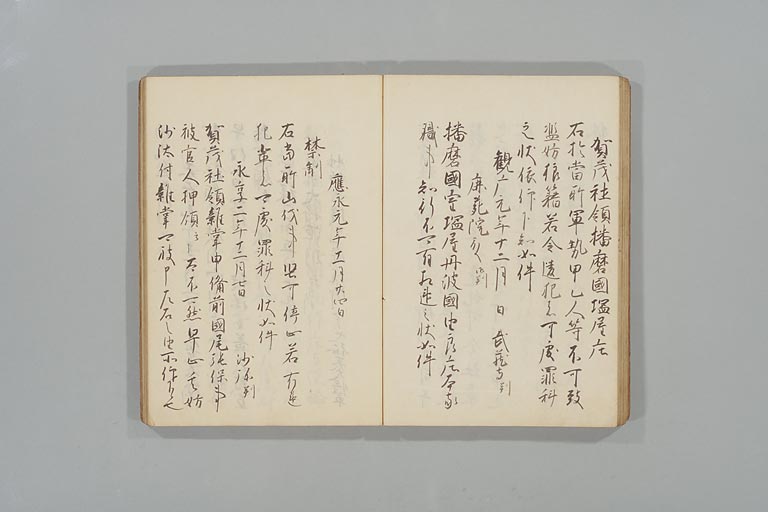 賀茂社領播磨國塩屋庄
右於當所軍勢甲乙人等不可致
濫妨狼藉若令違犯者可處罪科
之状依仰下知如件
觀応元年十二月 日 武蔵守判
麻 院 判
播磨國室塩屋丹波國由良庄本家
職事知行不可有相違之状如件
應永元年十二月廿四日
禁制
右當所山代事 可停止若有違
犯輩者可處罪科之状如件
永享二年十二月七日 沙弥判
賀茂社領雑掌申備前國尾張保事
被官人押領云々不可然早止其妨
沙汰付雑掌可被申左右之由所仰也